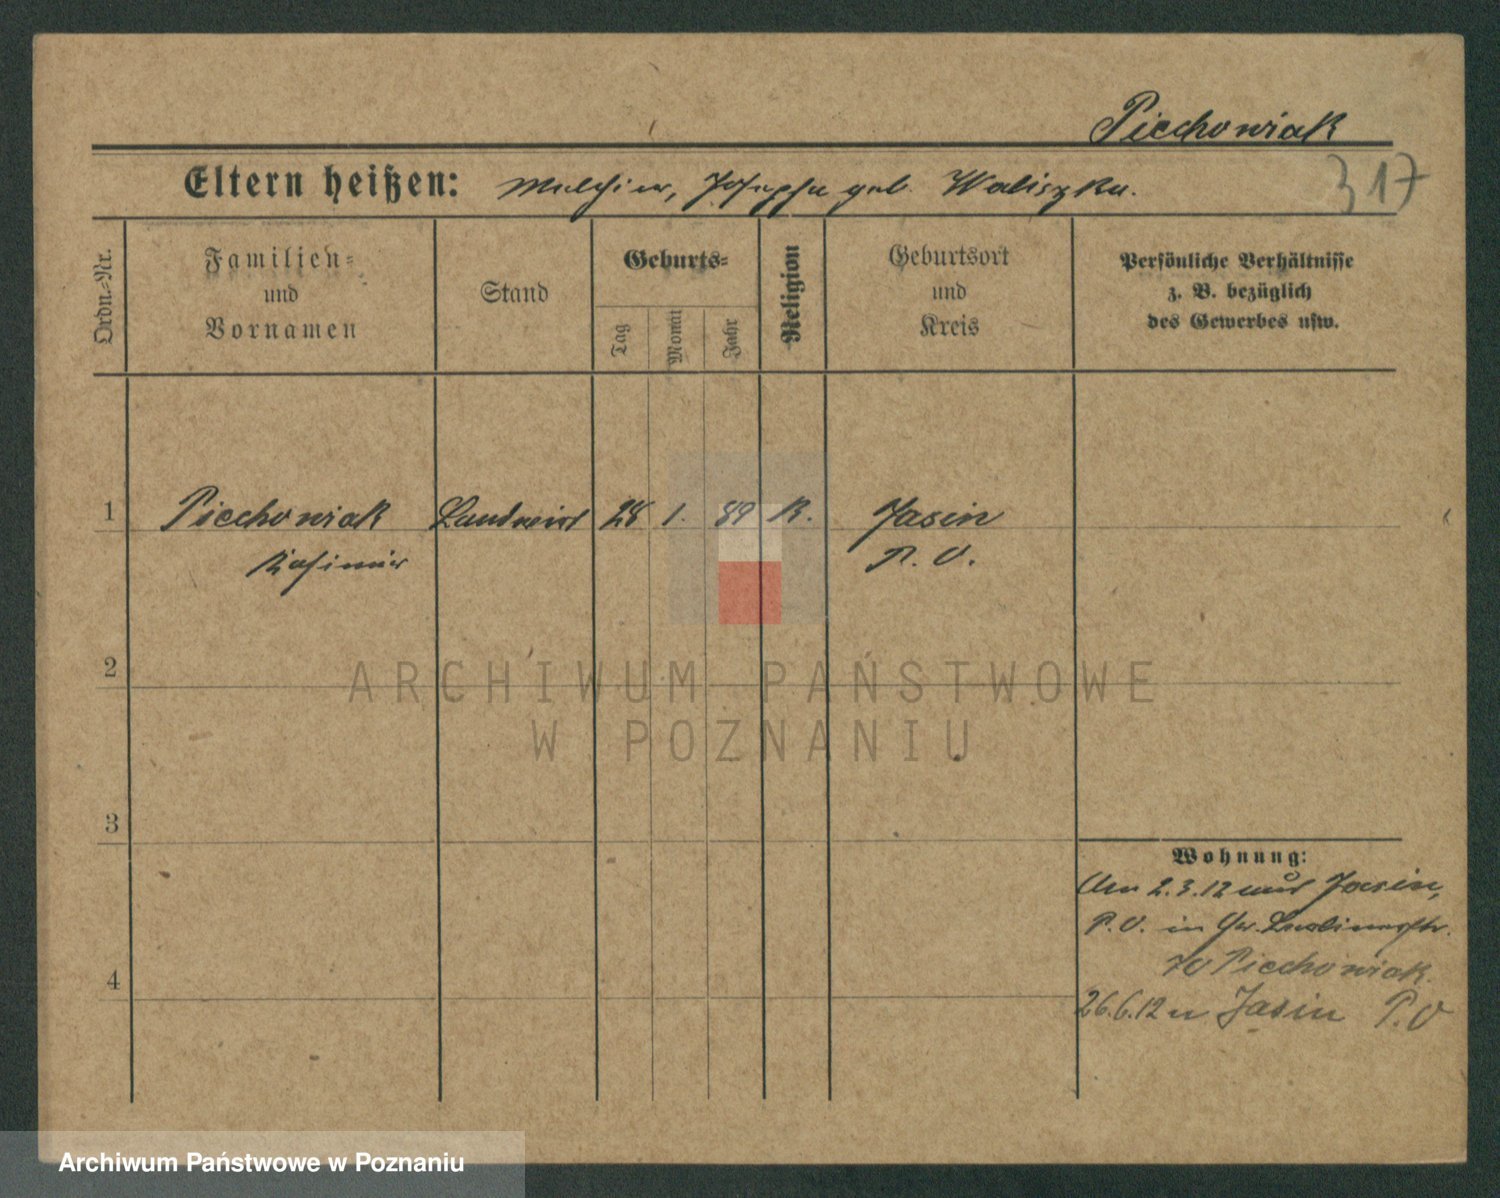 Piechowiak
317
Eltern heißen: Melchior, Josepha geb. Waliszka.
Ordn.-Nr.
Familien- und Vornamen
Stand
Geburts-
Tag
Monat
Jahr
Religion
Geburtsort und Kreis
Persönliche Verhältnisse
z. B. bezüglich
des Gewerbes usw.
1 Piechowiak Landwirt 28 1. 89 K. Jasin
Kasimir P. O.
2
3
4
Wohnung:
Am 2.3.12 aus Jasin,
P. O. in Gr. Berlinerstr.
70 Piechowiak.
26.6.12 n Jasin P. O
ARCHIWUM PAŃSTWOWE
W POZNANIU
Archiwum Państwowe w Poznaniu